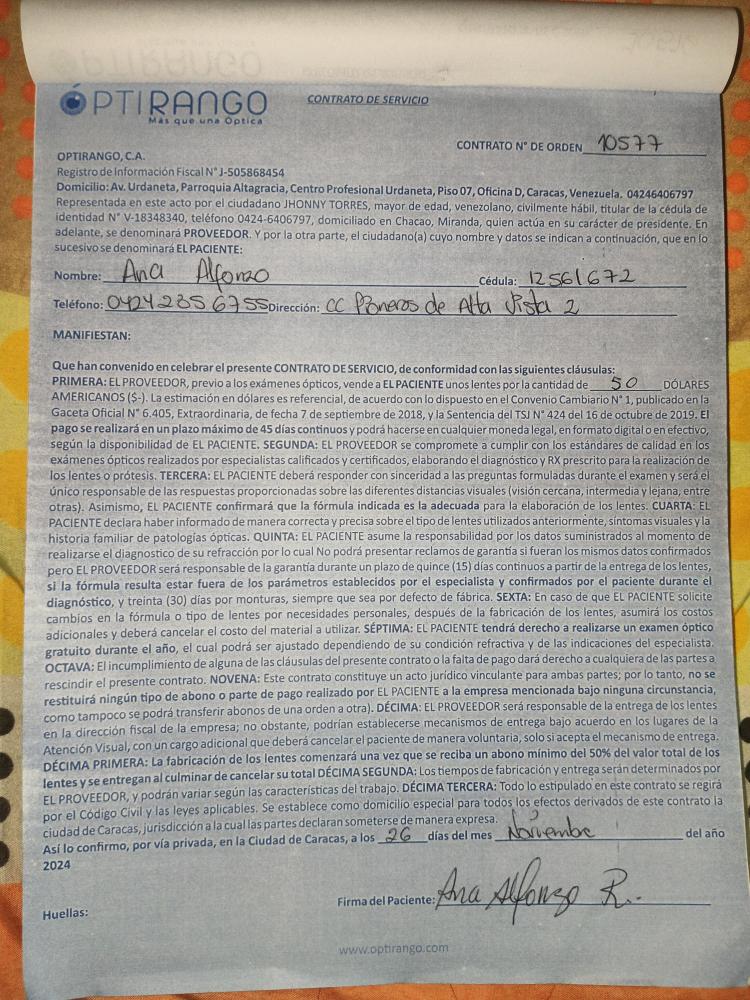 ÓPTIRANGO
Más que una Óptica
CONTRATO DE SERVICIO
CONTRATO N° DE ORDEN 10577
OPTIRANGO, C.A.
Registro de Información Fiscal N° J-505868454
Domicilio: Av. Urdaneta, Parroquia Altagracia, Centro Profesional Urdaneta, Piso 07, Oficina D, Caracas, Venezuela. 04246406797
Representada en este acto por el ciudadano JHONNY TORRES, mayor de edad, venezolano, civilmente hábil, titular de la cédula de
identidad N° V-18348340, teléfono 0424-6406797, domiciliado en Chacao, Miranda, quien actúa en su carácter de presidente. En
adelante, se denominará PROVEEDOR. Y por la otra parte, el ciudadano(a) cuyo nombre y datos se indican a continuación, que en lo
sucesivo se denominará EL PACIENTE:
Nombre: Ana Alfonzo Cédula: 12561672
Teléfono: 0424 235 6755 Dirección: CC Pioneros de Alta Vista 2
MANIFIESTAN:
Que han convenido en celebrar el presente CONTRATO DE SERVICIO, de conformidad con las siguientes cláusulas:
PRIMERA: EL PROVEEDOR, previo a los exámenes ópticos, vende a EL PACIENTE unos lentes por la cantidad de 50 DÓLARES
AMERICANOS ($-). La estimación en dólares es referencial, de acuerdo con lo dispuesto en el Convenio Cambiario N° 1, publicado en la
Gaceta Oficial N° 6.405, Extraordinaria, de fecha 7 de septiembre de 2018, y la Sentencia del TSJ N° 424 del 16 de octubre de 2019. El
pago se realizará en un plazo máximo de 45 días continuos y podrá hacerse en cualquier moneda legal, en formato digital o en efectivo,
según la disponibilidad de EL PACIENTE. SEGUNDA: EL PROVEEDOR se compromete a cumplir con los estándares de calidad en los
exámenes ópticos realizados por especialistas calificados y certificados, elaborando el diagnóstico y RX prescrito para la realización de
los lentes o prótesis. TERCERA: EL PACIENTE deberá responder con sinceridad a las preguntas formuladas durante el examen y será el
único responsable de las respuestas proporcionadas sobre las diferentes distancias visuales (visión cercana, intermedia y lejana, entre
otras). Asimismo, EL PACIENTE confirmará que la fórmula indicada es la adecuada para la elaboración de los lentes. CUARTA: EL
PACIENTE declara haber informado de manera correcta y precisa sobre el tipo de lentes utilizados anteriormente, síntomas visuales y la
historia familiar de patologías ópticas. QUINTA: EL PACIENTE asume la responsabilidad por los datos suministrados al momento de
realizarse el diagnostico de su refracción por lo cual No podrá presentar reclamos de garantía si fueran los mismos datos confirmados
pero EL PROVEEDOR será responsable de la garantía durante un plazo de quince (15) días continuos a partir de la entrega de los lentes,
si la fórmula resulta estar fuera de los parámetros establecidos por el especialista y confirmados por el paciente durante el
diagnóstico, y treinta (30) días por monturas, siempre que sea por defecto de fábrica. SEXTA: En caso de que EL PACIENTE solicite
cambios en la fórmula o tipo de lentes por necesidades personales, después de la fabricación de los lentes, asumirá los costos
adicionales y deberá cancelar el costo del material a utilizar. SÉPTIMA: EL PACIENTE tendrá derecho a realizarse un examen óptico
gratuito durante el año, el cual podrá ser ajustado dependiendo de su condición refractiva y de las indicaciones del especialista.
OCTAVA: El incumplimiento de alguna de las cláusulas del presente contrato o la falta de pago dará derecho a cualquiera de las partes a
rescindir el presente contrato. NOVENA: Este contrato constituye un acto jurídico vinculante para ambas partes; por lo tanto, no se
restituirá ningún tipo de abono o parte de pago realizado por EL PACIENTE a la empresa mencionada bajo ninguna circunstancia,
como tampoco se podrá transferir abonos de una orden a otra). DÉCIMA: EL PROVEEDOR será responsable de la entrega de los lentes
en la dirección fiscal de la empresa; no obstante, podrían establecerse mecanismos de entrega bajo acuerdo en los lugares de la
Atención Visual, con un cargo adicional que deberá cancelar el paciente de manera voluntaria, solo si acepta el mecanismo de entrega.
DÉCIMA PRIMERA: La fabricación de los lentes comenzará una vez que se reciba un abono mínimo del 50% del valor total de los
lentes y se entregan al culminar de cancelar su total DÉCIMA SEGUNDA: Los tiempos de fabricación y entrega serán determinados por
EL PROVEEDOR, y podrán variar según las características del trabajo. DÉCIMA TERCERA: Todo lo estipulado en este contrato se regirá
por el Código Civil y las leyes aplicables. Se establece como domicilio especial para todos los efectos derivados de este contrato la
ciudad de Caracas, jurisdicción a la cual las partes declaran someterse de manera expresa.
Así lo confirmo, por vía privada, en la Ciudad de Caracas, a los 26 días del mes Noviembre del año
2024
Firma del Paciente: Ana Alfonzo R.
Huellas:
www.optirango.com